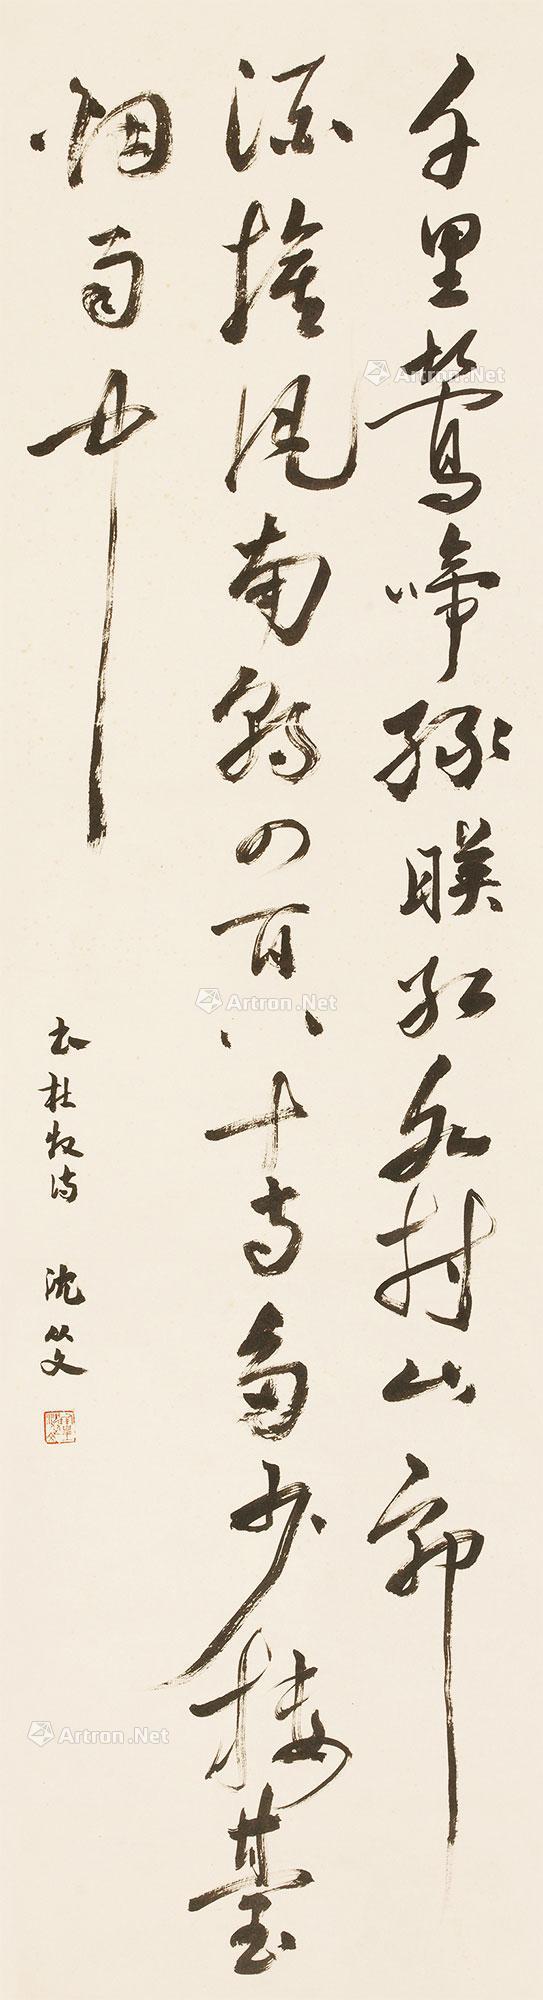 千里鶯啼綠暎紅水村山郭
酒旗风南朝四百八十寺多少樓臺
烟雨中
书杜牧诗 沈从文
Artron.Net
Artron.Net
Artron.Net